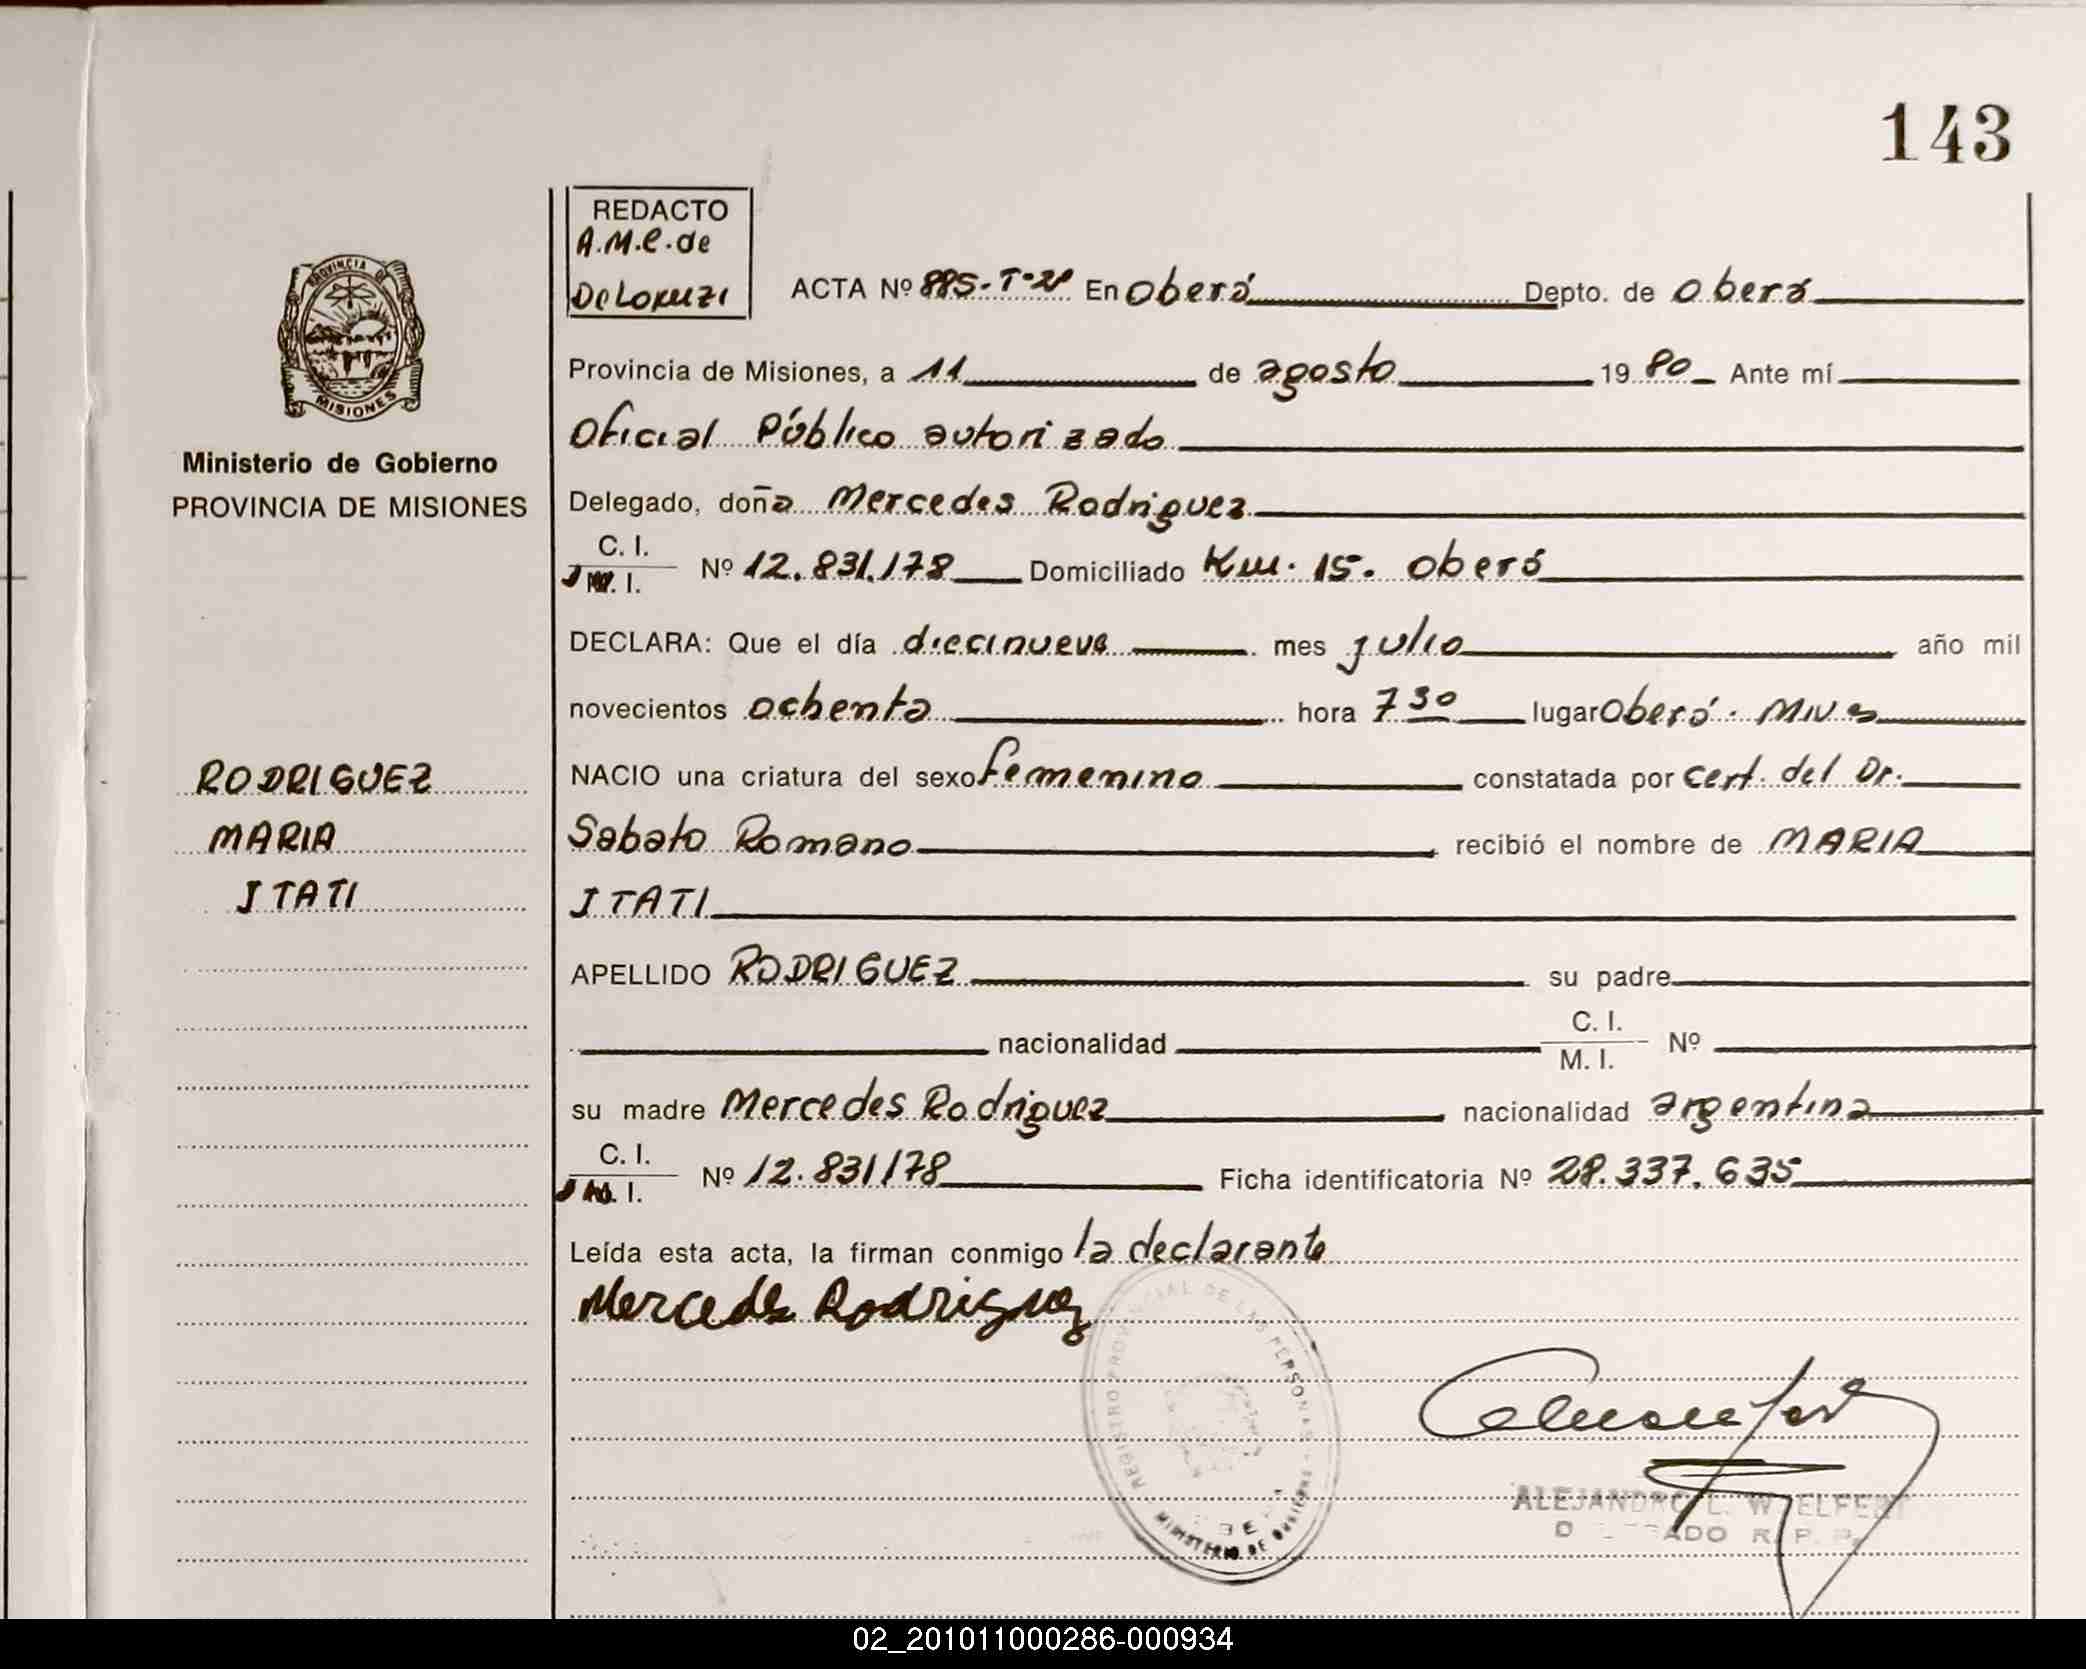 143
REDACTO
A.M.C. de
De Loruzi
ACTA Nº 885-Tº 2º En Oberá Depto. de Oberá
Provincia de Misiones, a 11 de agosto 1980 Ante mí
Oficial Público autorizado
Delegado, doña Mercedes Rodriguez
C. I.
M. I.
Nº 12.831.178 Domiciliado Km. 15. Oberá
DECLARA: Que el día diecinueve mes julio año mil
novecientos ochenta hora 7 30 lugar Oberá. Mnes
NACIO una criatura del sexo femenino constatada por cert. del Dr.
Sabato Romano recibió el nombre de MARIA
ITATI
APELLIDO RODRIGUEZ su padre
nacionalidad
C. I.
M. I.
Nº
su madre Mercedes Rodriguez nacionalidad argentina
C. I.
M. I.
Nº 12.831178 Ficha identificatoria Nº 28.337.635
Leída esta acta, la firman conmigo la declarante
Mercedes Rodriguez
REGISTRO PROVINCIAL DE LAS PERSONAS
MINISTERIO DE GOBIERNO
ALEJANDRO L. WELFERT
DELEGADO R. P. P.
PROVINCIA DE
MISIONES
Ministerio de Gobierno
PROVINCIA DE MISIONES
RODRIGUEZ
MARIA
ITATI
02_201011000286-000934